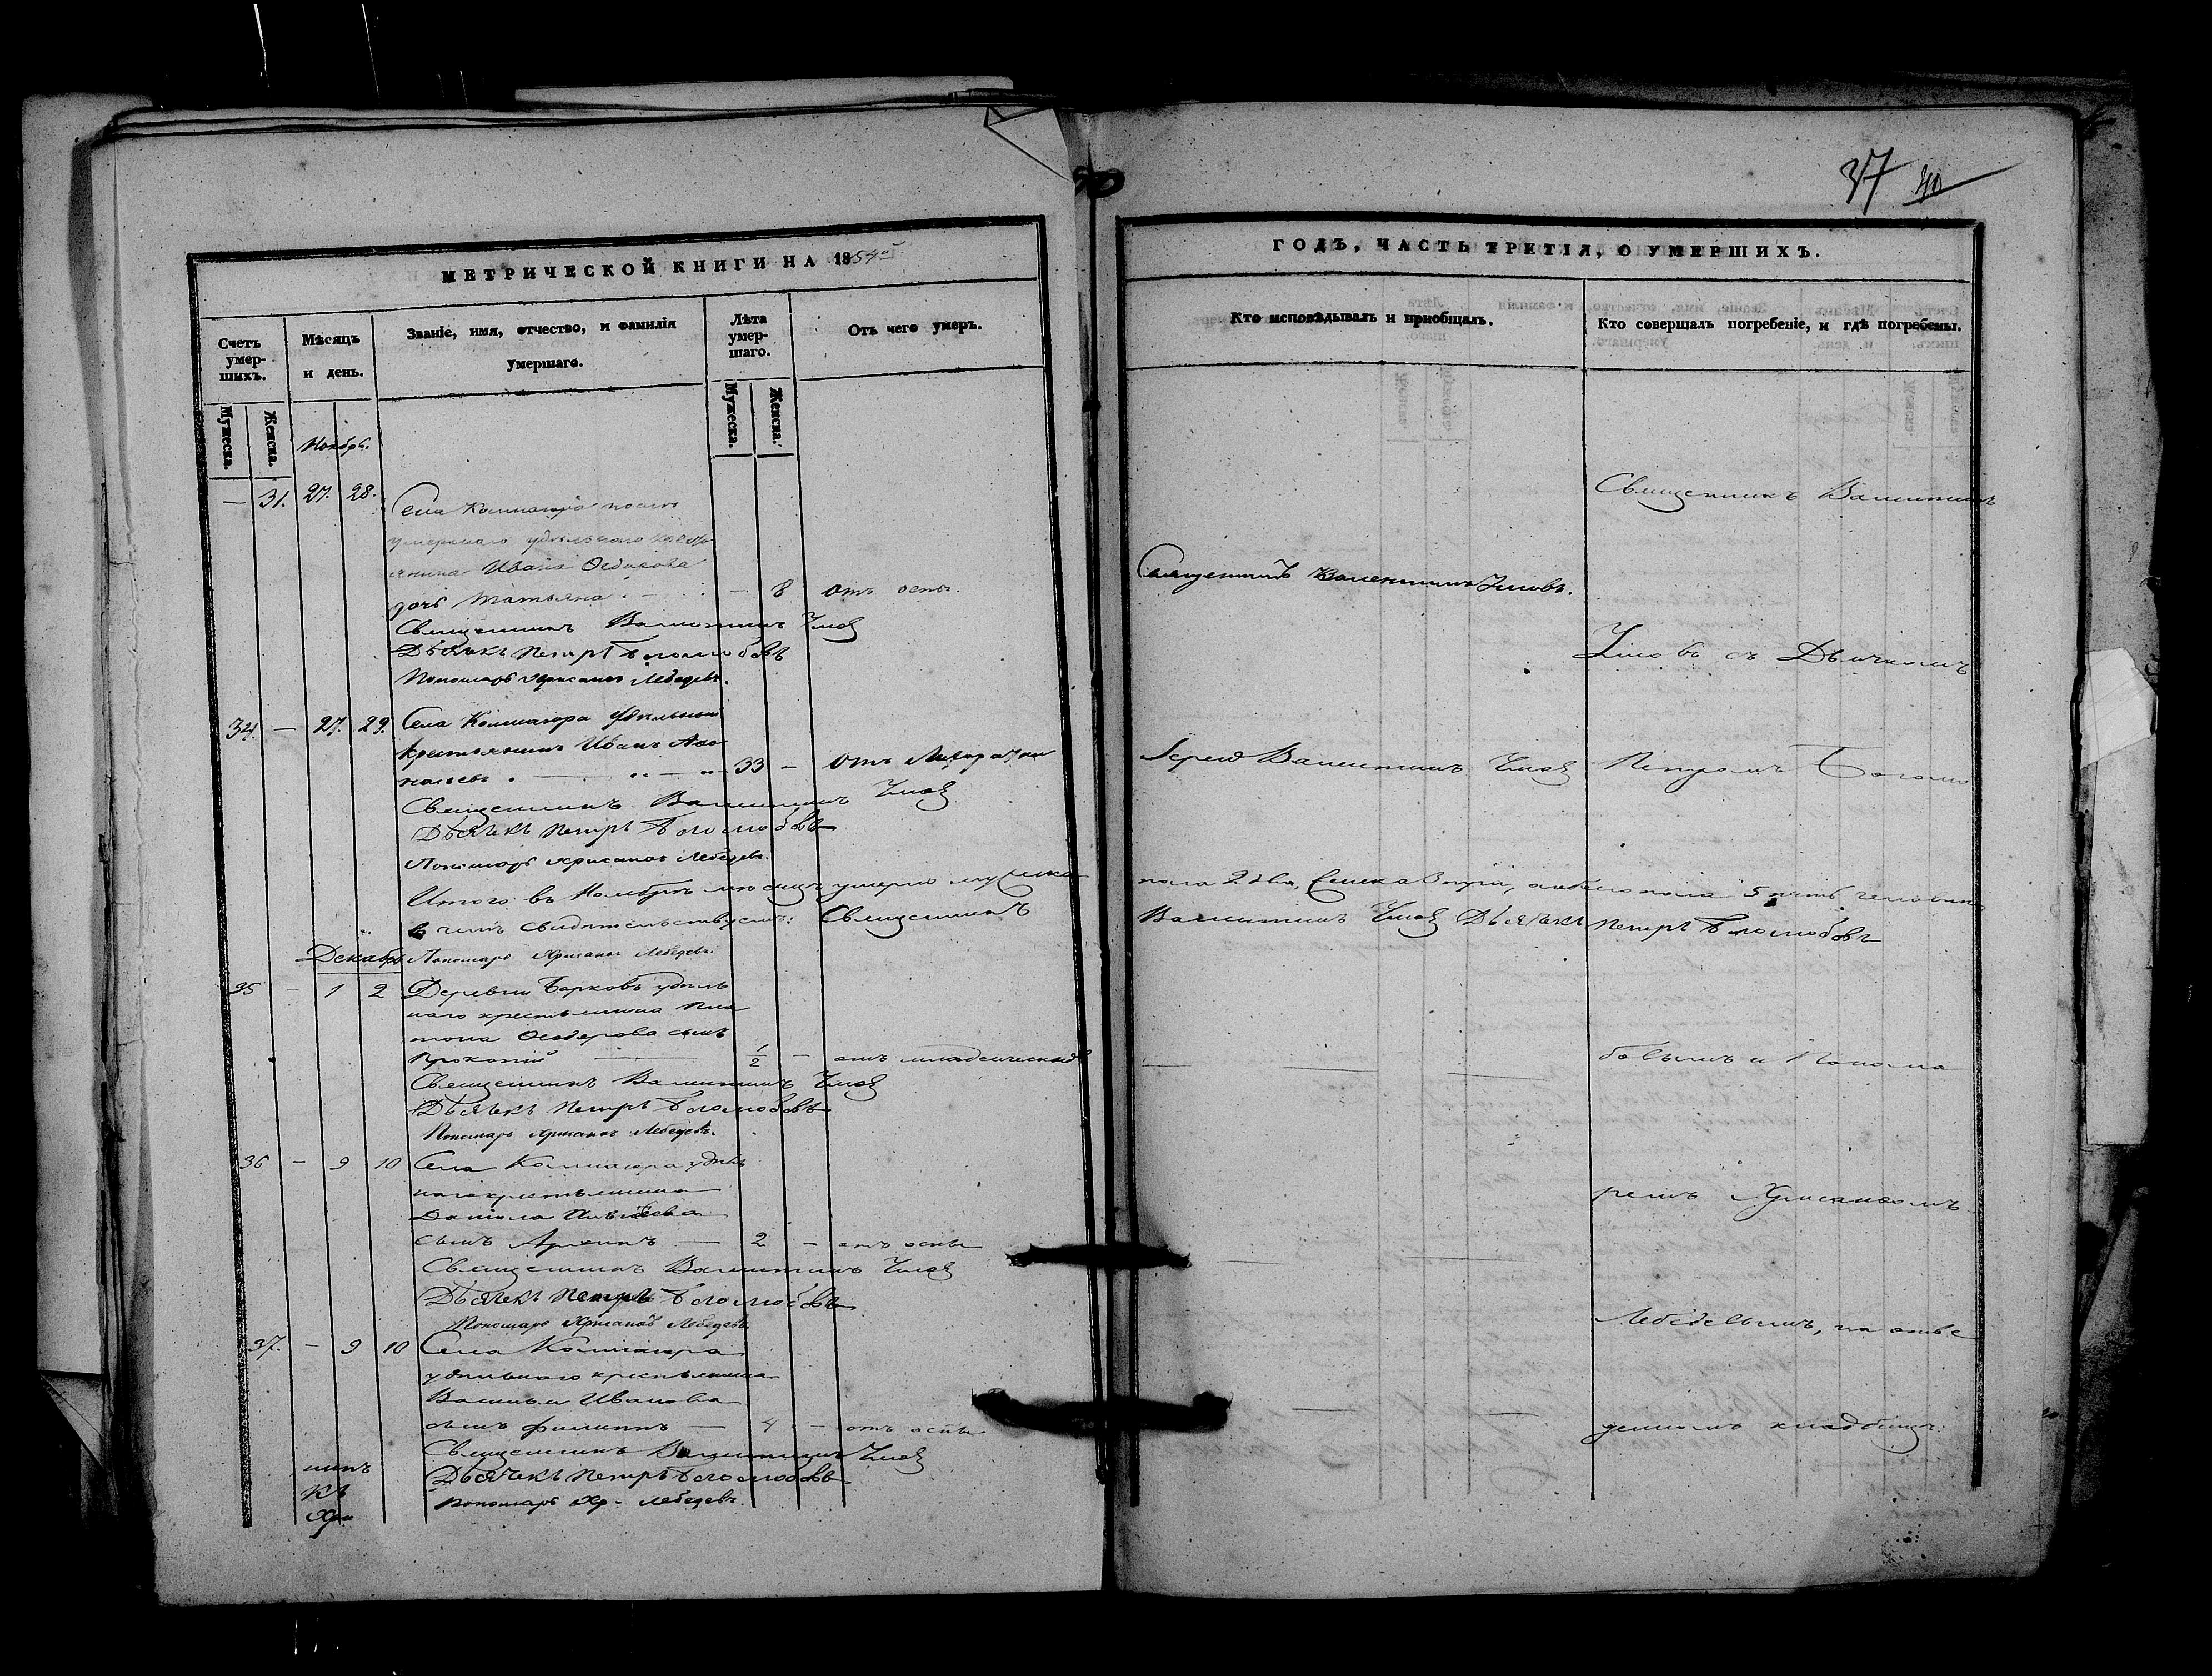 37 40
МЕТРИЧЕСКОЙ КНИГИ НА 1854й
ГОДЪ, ЧАСТЬ ТРЕТІЯ, О УМЕРШИХЪ.
Счетъ умер-шихъ.
Мѣсяцъ и день.
Званіе, имя, отчество, и фамилія умершаго.
Лѣта умер-шаго.
Отъ чего умеръ.
Кто исповѣдывалъ и приобщалъ.
Кто совершалъ погребеніе, и гдѣ погребены.
Мужеска.
Женска.
Мужеска.
Женска.
Ноябрь.
— 31. 27. 28.
Села после
умершаго удѣльнаго кресть
янина Ивана Федорова
дочь Татьяна — 8 отъ оспы.
Священникъ Валентинъ
Дьячекъ Петръ Боголюбовъ
Пономарь Хрисанфъ Лебедевъ.
34. — 27. 29. Села удѣльный
крестьянинъ Иванъ
33 — отъ Лихорадки
Священникъ Валентинъ
Дьячекъ Петръ Боголюбовъ
Пономарь Хрисанфъ Лебедевъ.
Итого въ Ноябрѣ мѣсяцѣ умерло мужеска
пола 2 два, Женска 3 три, обоего пола 5 пять человѣкъ
въ чемъ свидѣтельствуемъ: Священникъ
Валентинъ Дьячекъ Петръ Боголюбовъ
Декабрь Пономарь Хрисанфъ Лебедевъ.
35 — 1 2 Деревни удѣль
наго крестьянина Пла
тона Феодорова сынъ
Прокопій 1/2 — отъ младенческой
Священникъ Валентинъ
Дьячекъ Петръ Боголюбовъ
Пономарь Хрисанфъ Лебедевъ.
36 — 9 10 Села удѣль
наго крестьянина
Даніила
сынъ — 2 — отъ оспы
Священникъ Валентинъ
Дьячекъ Петръ Боголюбовъ
Пономарь Хрисанфъ Лебедевъ
37. — 9 10 Села
удѣльнаго крестьянина
Василья Иванова
сынъ Филиппъ — 4 — отъ оспы
Священникъ Валентинъ
Дьячекъ Петръ Боголюбовъ
Пономарь Хр- Лебедевъ.
никъ
къ
Хри
Священникъ Валентинъ
Іерей Валентинъ
Священникъ Валентинъ
съ Дьячкомъ
Петромъ Боголю
бовымъ и Понома
ремъ Хрисанфомъ
Лебедевымъ, на отве
денномъ кладбищѣ.